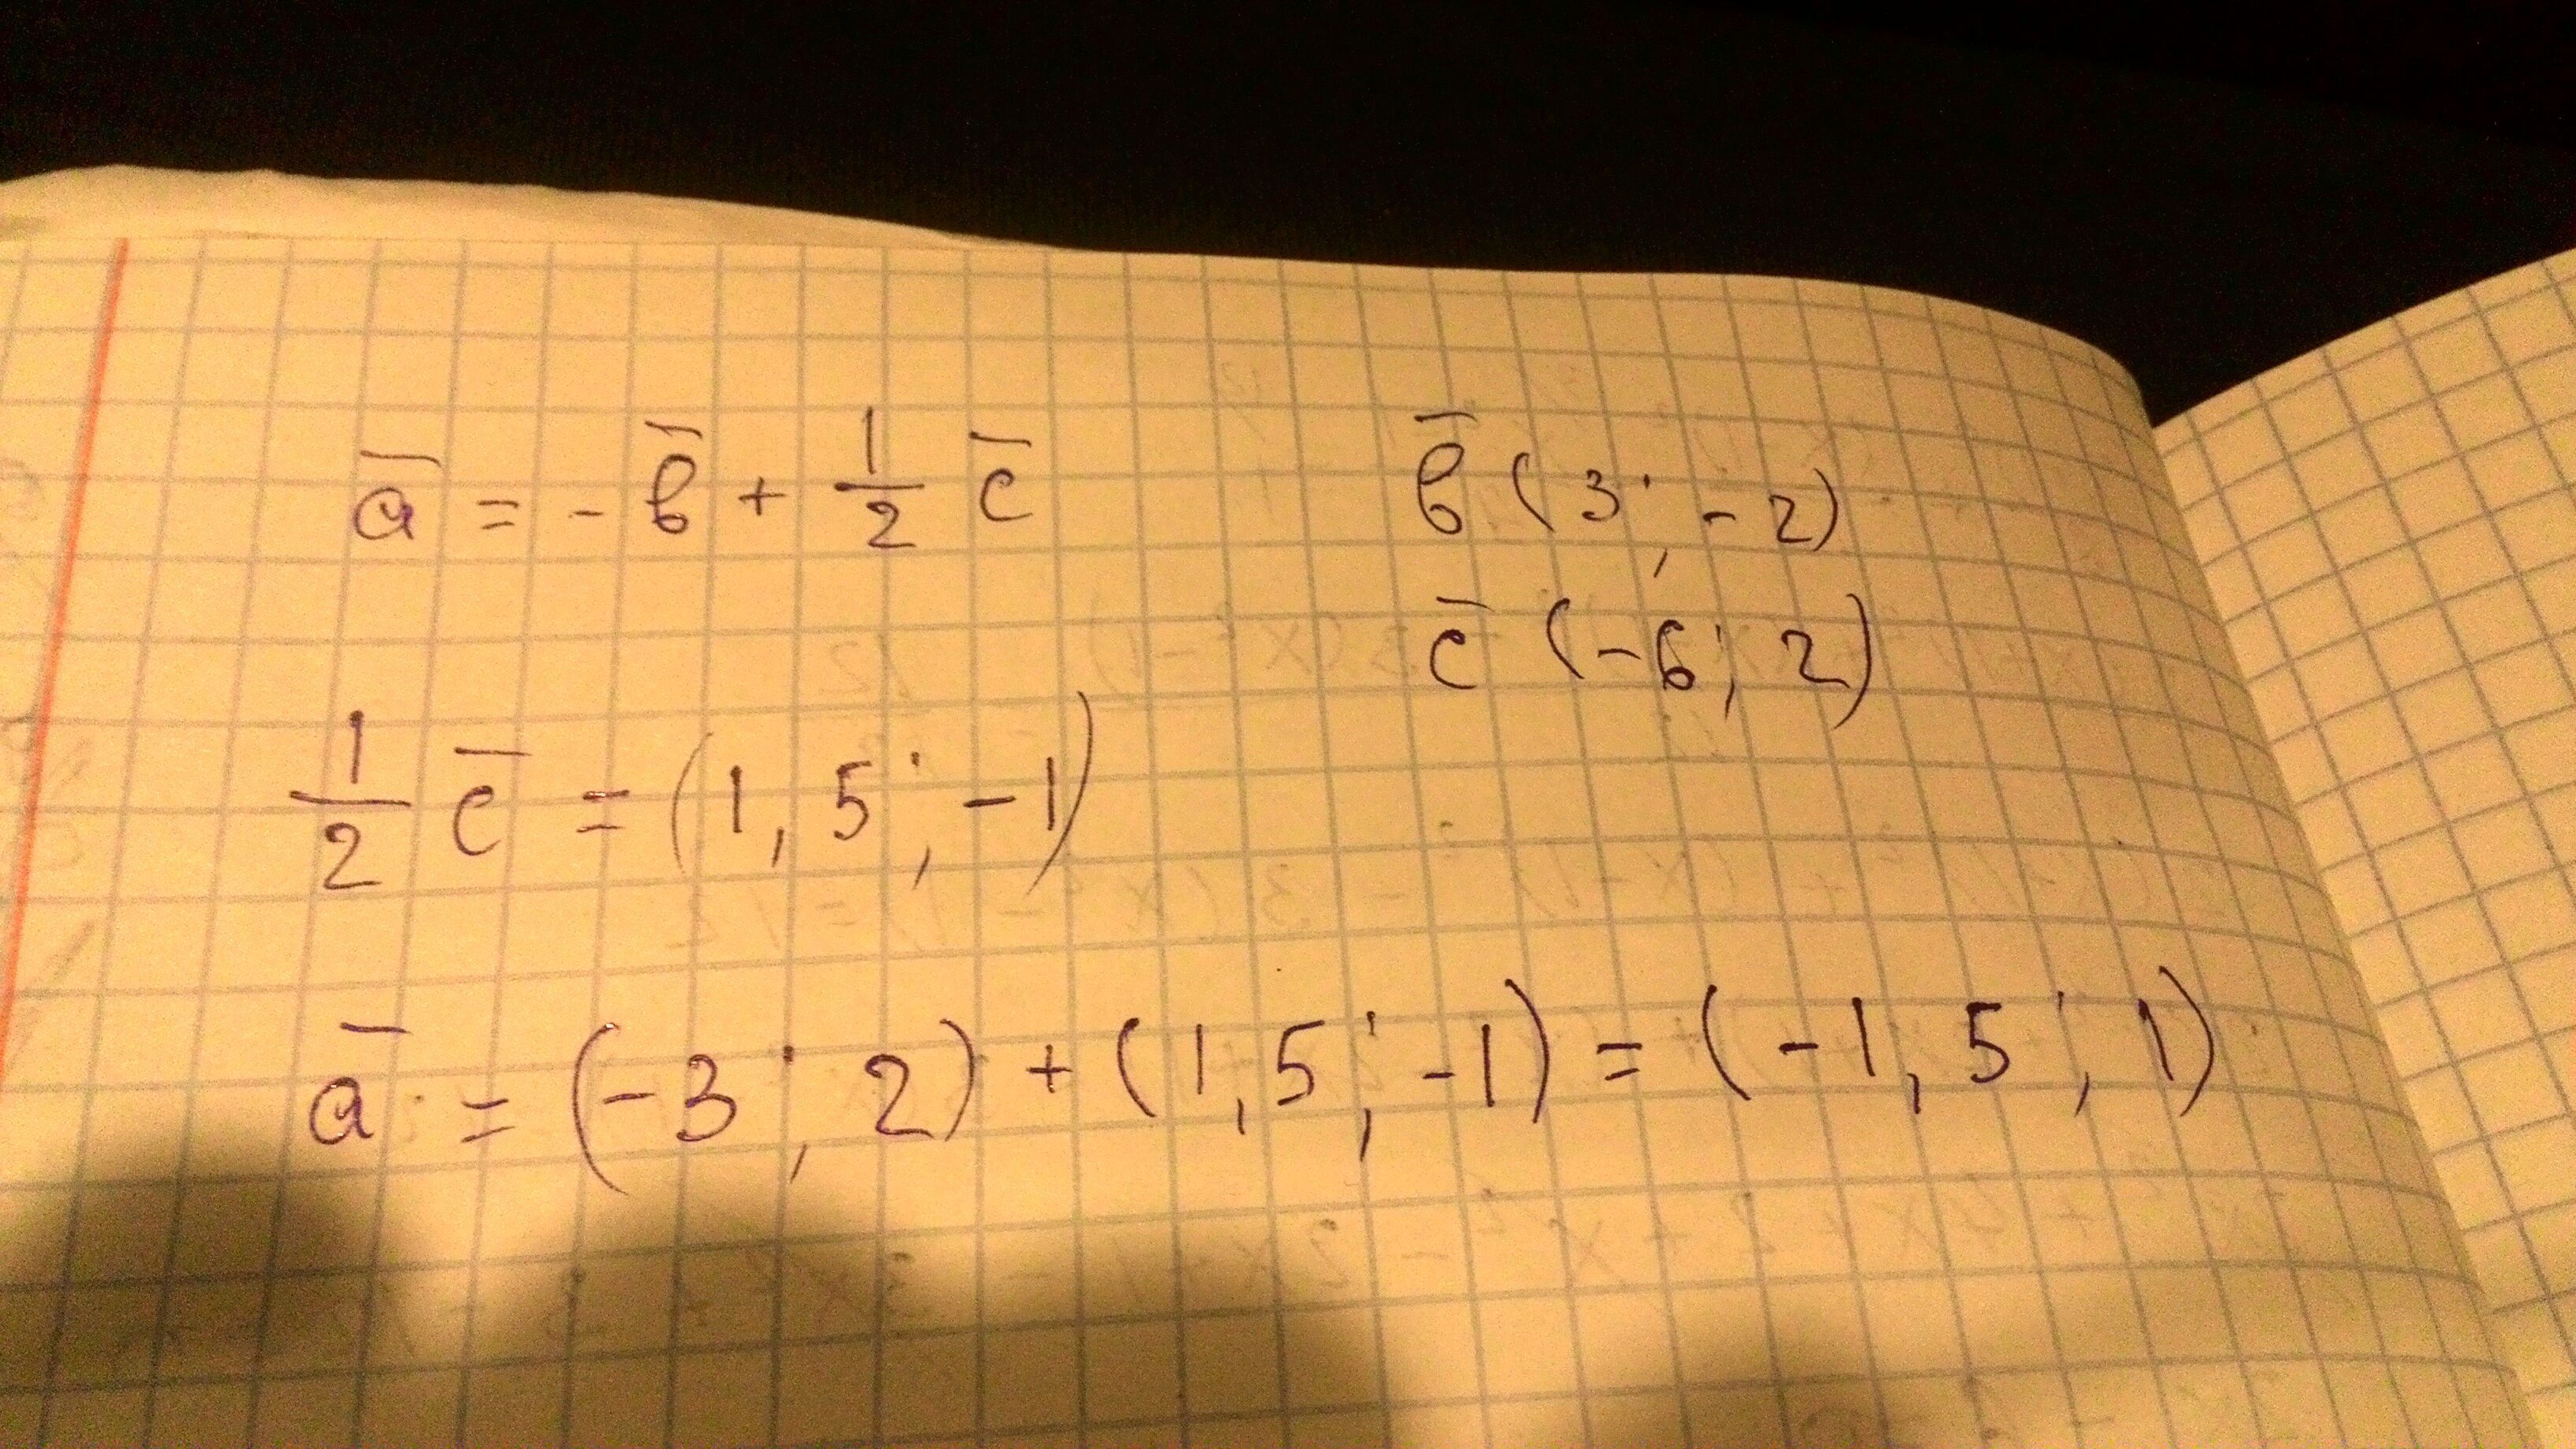 a̅ = - b̅ + 1/2 c̅
b̅ (3 ; - 2)
c̅ (- 6 ; 2)
1/2 c̅ = (1, 5 ; - 1)
a̅ = (- 3 ; 2) + (1, 5 ; - 1) = (- 1, 5 ; 1)